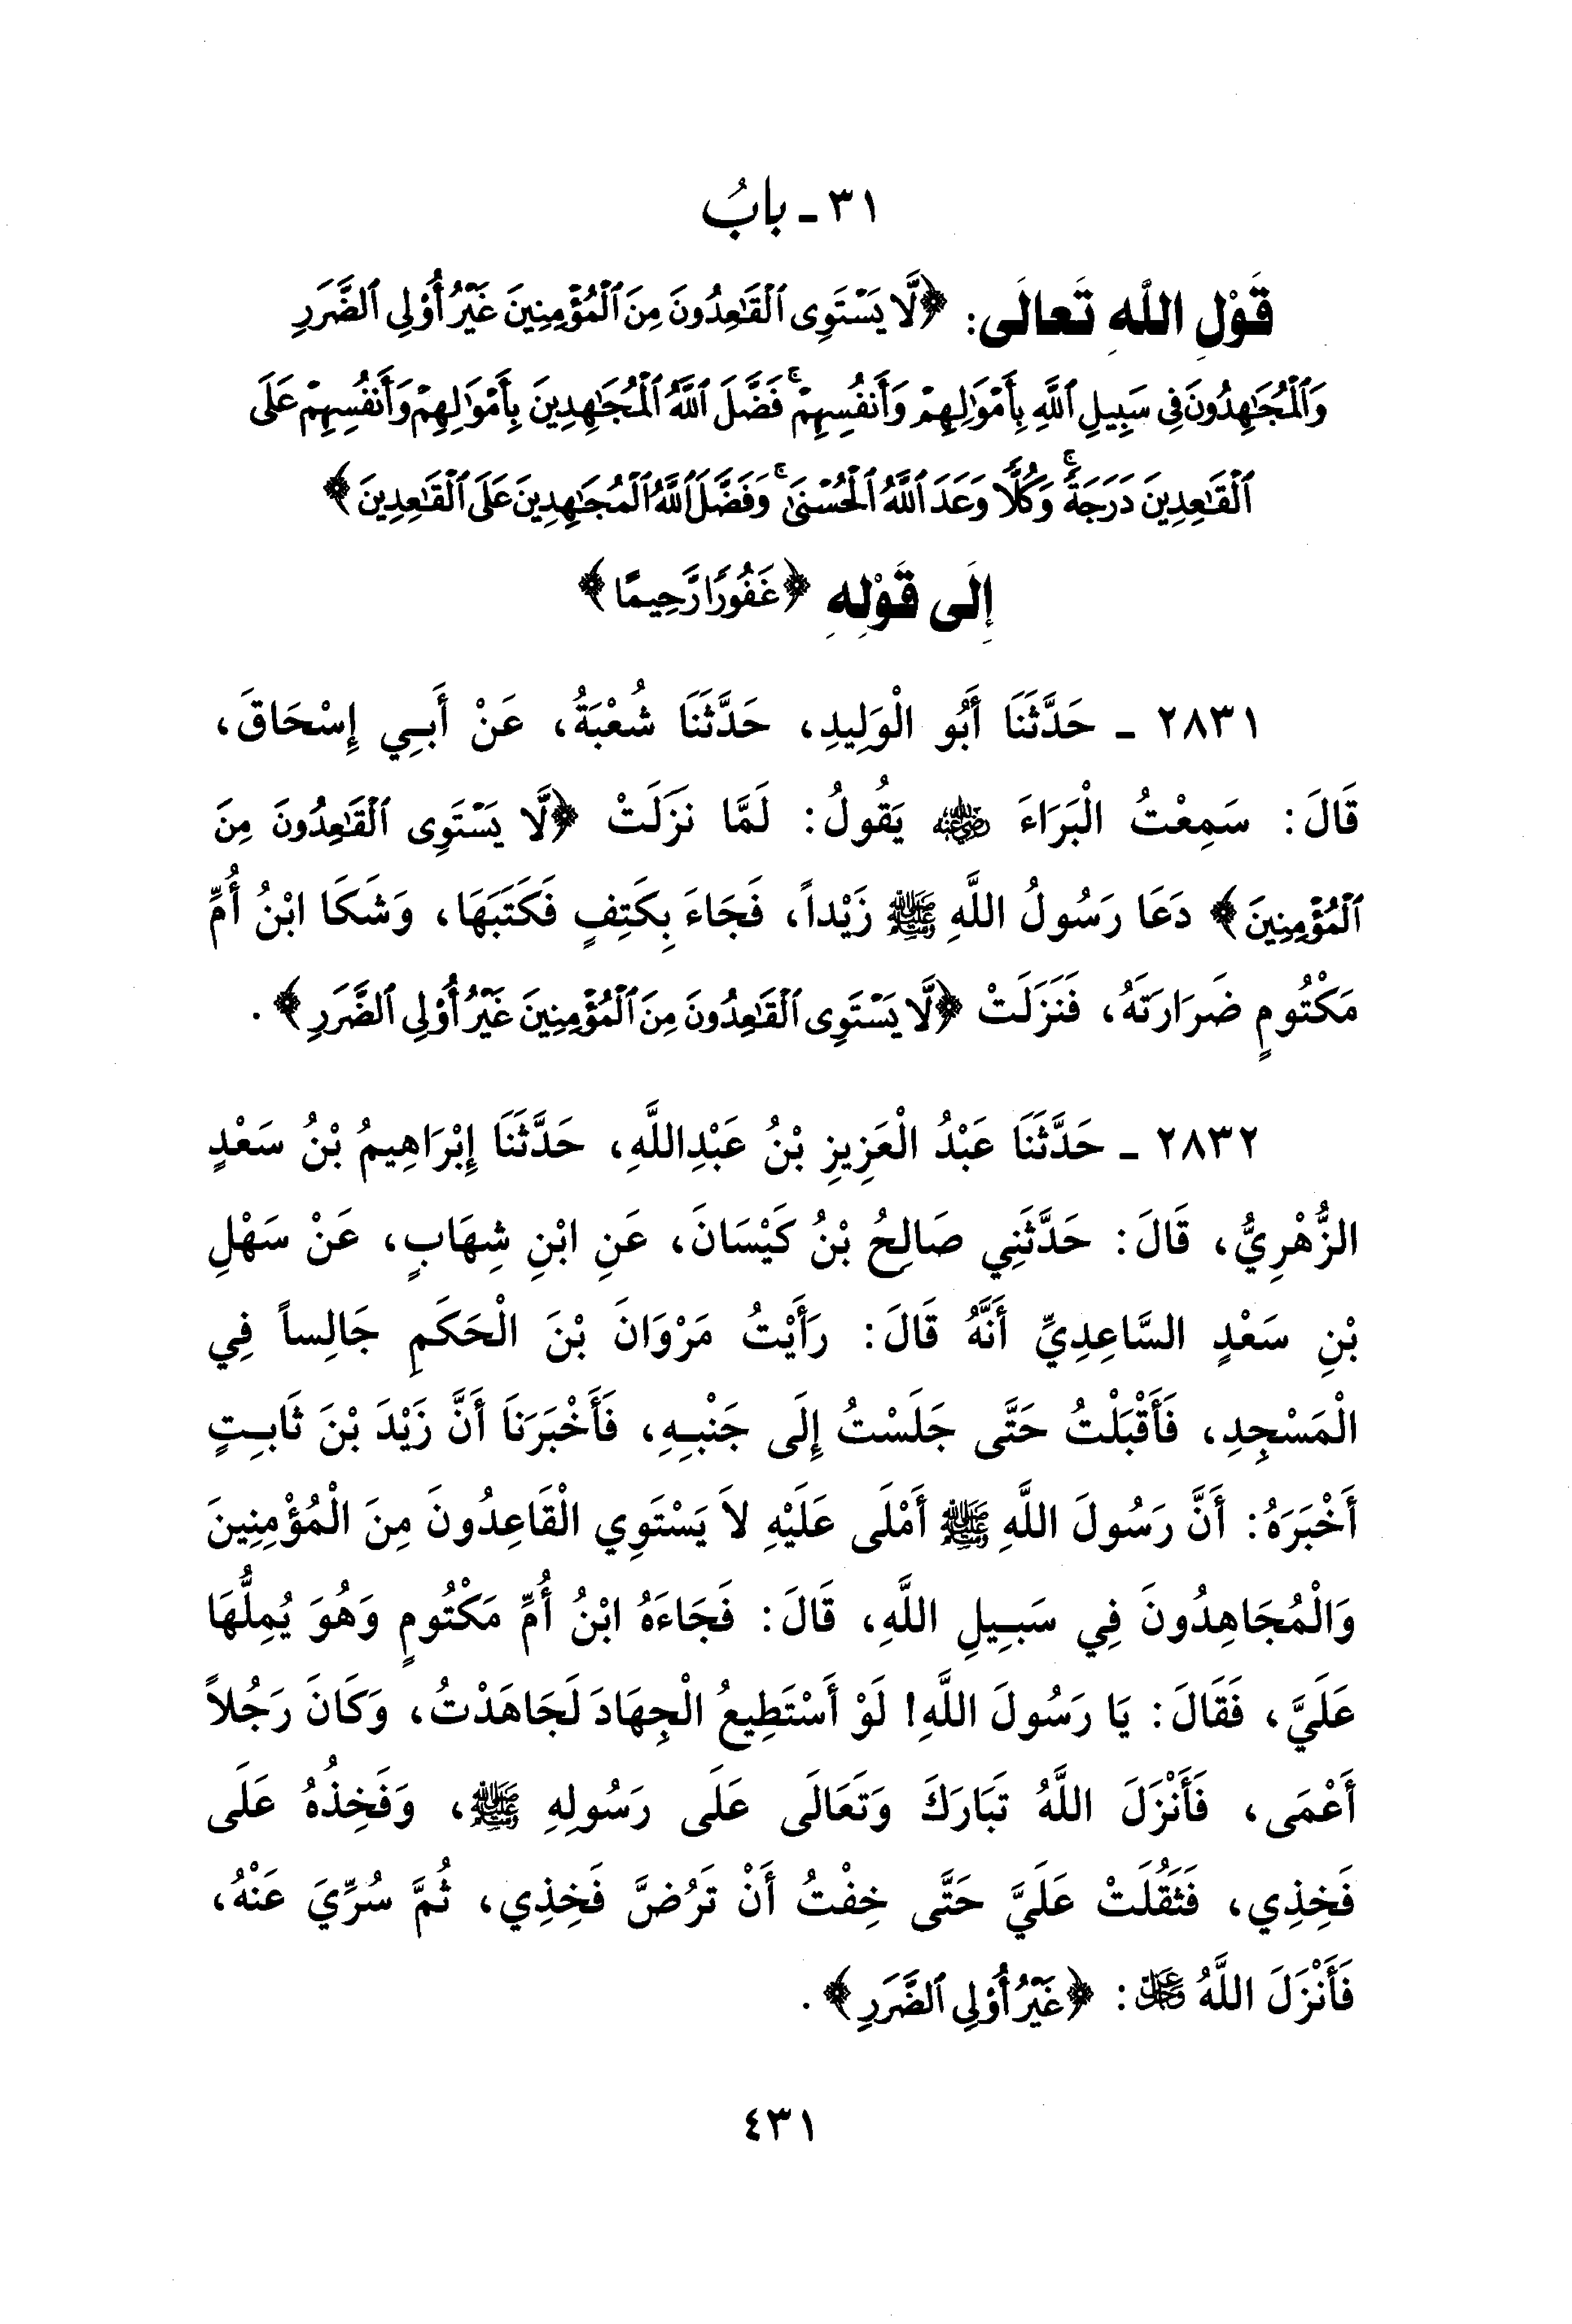 ٣١ - بابُ
قَوْلِ اللَّهِ تَعالَى: ﴿لَّا يَسْتَوِى ٱلْقَٰعِدُونَ مِنَ ٱلْمُؤْمِنِينَ غَيْرُ أُوْلِى ٱلضَّرَرِ
وَٱلْمُجَٰهِدُونَ فِى سَبِيلِ ٱللَّهِ بِأَمْوَٰلِهِمْ وَأَنفُسِهِمْ ۚ فَضَّلَ ٱللَّهُ ٱلْمُجَٰهِدِينَ بِأَمْوَٰلِهِمْ وَأَنفُسِهِمْ عَلَى
ٱلْقَٰعِدِينَ دَرَجَةً ۚ وَكُلًّا وَعَدَ ٱللَّهُ ٱلْحُسْنَىٰ ۚ وَفَضَّلَ ٱللَّهُ ٱلْمُجَٰهِدِينَ عَلَى ٱلْقَٰعِدِينَ﴾
إِلَى قَوْلِهِ ﴿غَفُورًا رَّحِيمًا﴾
٢٨٣١ ـ حَدَّثَنَا أَبُو الْوَلِيدِ، حَدَّثَنَا شُعْبَةُ، عَنْ أَبِي إِسْحَاقَ،
قَالَ: سَمِعْتُ الْبَرَاءَ رضي الله عنه يَقُولُ: لَمَّا نَزَلَتْ ﴿لَّا يَسْتَوِى ٱلْقَٰعِدُونَ مِنَ
ٱلْمُؤْمِنِينَ﴾ دَعَا رَسُولُ اللَّهِ ﷺ زَيْداً، فَجَاءَ بِكَتِفٍ فَكَتَبَهَا، وَشَكَا ابْنُ أُمِّ
مَكْتُومٍ ضَرَارَتَهُ، فَنَزَلَتْ ﴿لَّا يَسْتَوِى ٱلْقَٰعِدُونَ مِنَ ٱلْمُؤْمِنِينَ غَيْرُ أُوْلِى ٱلضَّرَرِ﴾.
٢٨٣٢ ـ حَدَّثَنَا عَبْدُ الْعَزِيزِ بْنُ عَبْدِاللَّهِ، حَدَّثَنَا إِبْرَاهِيمُ بْنُ سَعْدٍ
الزُّهْرِيُّ، قَالَ: حَدَّثَنِي صَالِحُ بْنُ كَيْسَانَ، عَنِ ابْنِ شِهَابٍ، عَنْ سَهْلِ
بْنِ سَعْدٍ السَّاعِدِيِّ أَنَّهُ قَالَ: رَأَيْتُ مَرْوَانَ بْنَ الْحَكَمِ جَالِساً فِي
الْمَسْجِدِ، فَأَقْبَلْتُ حَتَّى جَلَسْتُ إِلَى جَنْبِهِ، فَأَخْبَرَنَا أَنَّ زَيْدَ بْنَ ثَابِتٍ
أَخْبَرَهُ: أَنَّ رَسُولَ اللَّهِ ﷺ أَمْلَى عَلَيْهِ لاَ يَسْتَوِي الْقَاعِدُونَ مِنَ الْمُؤْمِنِينَ
وَالْمُجَاهِدُونَ فِي سَبِيلِ اللَّهِ، قَالَ: فَجَاءَهُ ابْنُ أُمِّ مَكْتُومٍ وَهُوَ يُمِلُّهَا
عَلَيَّ، فَقَالَ: يَا رَسُولَ اللَّهِ! لَوْ أَسْتَطِيعُ الْجِهَادَ لَجَاهَدْتُ، وَكَانَ رَجُلاً
أَعْمَى، فَأَنْزَلَ اللَّهُ تَبَارَكَ وَتَعَالَى عَلَى رَسُولِهِ ﷺ، وَفَخِذُهُ عَلَى
فَخِذِي، فَثَقُلَتْ عَلَيَّ حَتَّى خِفْتُ أَنْ تَرُضَّ فَخِذِي، ثُمَّ سُرِّيَ عَنْهُ،
فَأَنْزَلَ اللَّهُ عز وجل: ﴿غَيْرُ أُوْلِى ٱلضَّرَرِ﴾.
٤٣١